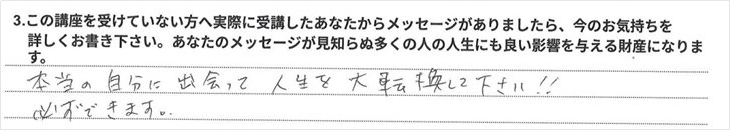 3.この講座を受けていない方へ実際に受講したあなたからメッセージがありましたら、今のお気持ちを
詳しくお書き下さい。あなたのメッセージが見知らぬ多くの人の人生にも良い影響を与える財産になりま
す。
本当の自分に出会って 人生を大転換して下さい!!
必ずできます。